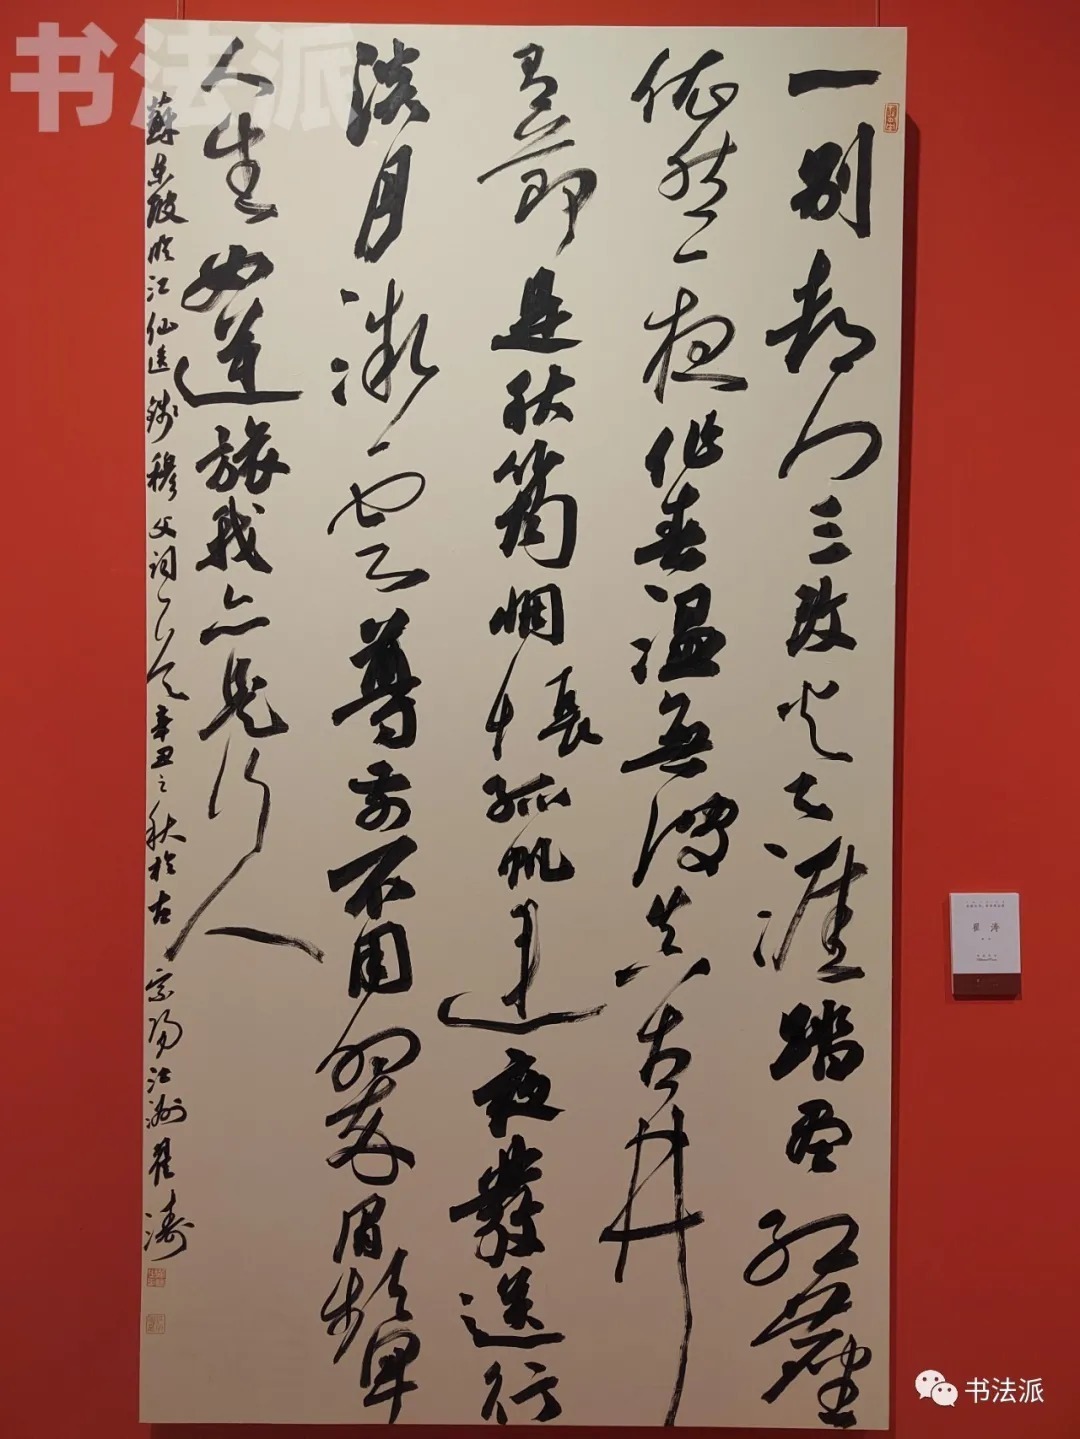 一别都门三改火天涯踏尽红尘
依然一笑作春温无波真古井
有节是秋筠惆怅孤帆连夜发送行
淡月微云尊前不用翠眉颦
人生如逆旅我亦是行人
苏东坡临江仙送钱穆父词一首 辛丑之秋于古
宗阳江湖翟涛
翟涛
书法派
书法派